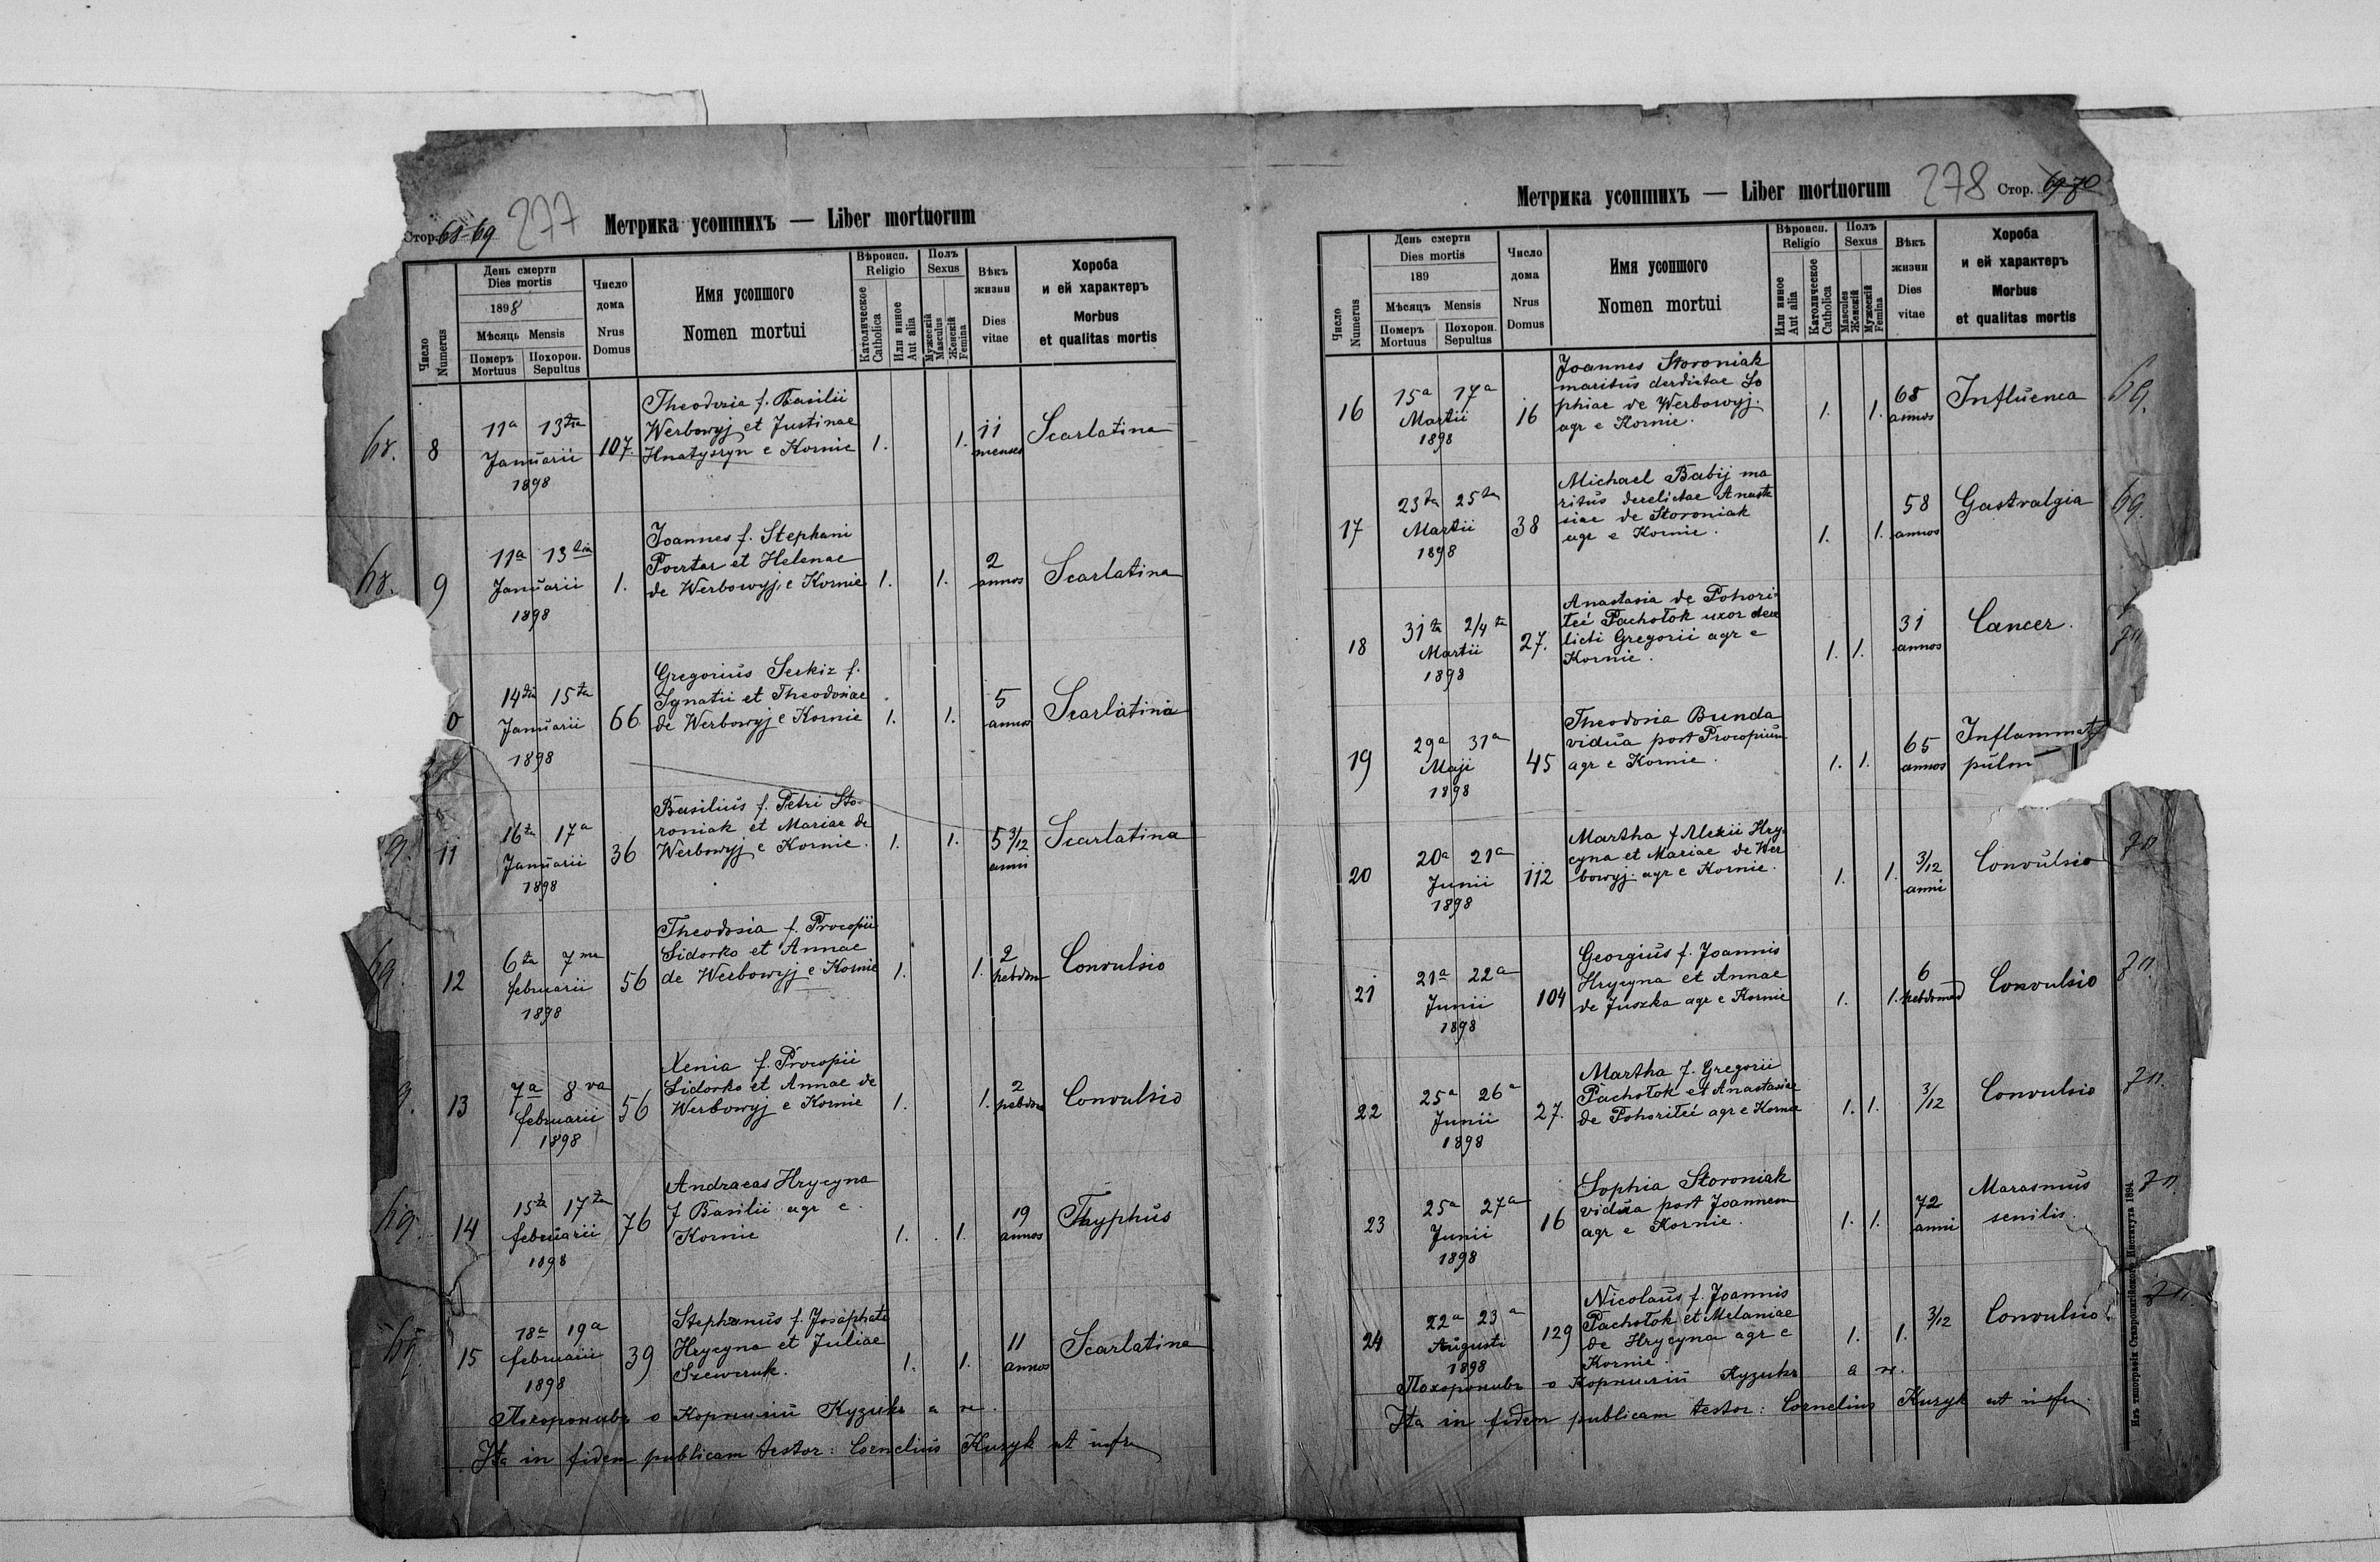 Стор. 68-69 277 Метрика усопшихъ — Liber mortuorum
Число Numerus
День смерти Dies mortis
1898
Мѣсяць Mensis
Померъ Mortuus
Похорон. Sepultus
Число дома Nrus Domus
Имя усопшого Nomen mortui
Вѣроисп. Religio
Католическое Catholica
Или инное Aut alia
Полъ Sexus
Мужескій Masculus
Женскій Femina
Вѣкъ жизни Dies vitae
Хороба и ей характеръ Morbus et qualitas mortis
68. 8 11a 13tia Januarii 1898 107.
Theodozia f. Basilii
Werbowyj et Justinae
Hnatyszyn e Kornie
1. 1. 11 menses Scarlatina
68. 9 11a 13tia Januarii 1898 1.
Joannes f. Stephani
et Helenae
de Werbowyj, e Kornie
1. 1. 2 annos Scarlatina
0 14ta 15ta Januarii 1898 66
Gregorius Serkiz f.
Ignatii et Theodosiae
de Werbowyj e Kornie
1. 1. 5 annos Scarlatina
9. 11 16ta 17a Januarii 1898 36
Basilius f. Petri Sto-
roniak et Mariae de
Werbowyj e Kornie.
1. 1. 5 3/12 anni Scarlatina
69. 12 6ta 7ma februarii 1898 56
Theodosia f. Procopii
Sidorko et Annae
de Werbowyj e Kornie
1. 1. 2 hebdom Convulsio
9. 13 7a 8va februarii 1898 56
Xenia f. Procopii
Sidorko et Annae de
Werbowyj e Kornie
1. 1. 2 hebdom Convulsio
69. 14 15ta 17ta februarii 1898 76
Andraeas Hrycyna
f Basilii agr e
Kornie
1. 1. 19 annos Thyphus
69. 15 18a 19a februarii 1898 39
Stephanus f. Josaphati
Hrycyna et Juliae
Szewczuk.
1. 1. 11 annos Scarlatina
Похоронивъ о Корнилій Кузикъ
Ita in fidem publicam testor: Cornelius Kuzyk ut infra
Метрика усопшихъ — Liber mortuorum 278 Стор. 69-70
Число Numerus
День смерти Dies mortis
189
Мѣсяцъ Mensis
Померъ Mortuus
Похорон. Sepultus
Число дома Nrus Domus
Имя усопшого Nomen mortui
Вѣроисп. Religio
Или инное Aut alia
Католическое Catholica
Полъ Sexus
Masculus Женскій
Мужескій Femina
Вѣкъ жизни Dies vitae
Хороба и ей характеръ Morbus et qualitas mortis
16 15a 17a Martii 1898 16
Joannes Storoniak
maritus So
phiae de Werbowyj.
agr e Kornie.
1. 1. 68 annos Influenca 69.
17 23tia 25ta Martii 1898 38
Michael Babij ma
ritus derelictae Anasta
siae de Storoniak
agr e Kornie.
1. 1. 58 annos Gastralgia 69.
18 31ta 2/4ta Martii 1898 27.
Anastasia de Pohori-
Pachołok uxor dere
licti Gregorii agr e
Kornie.
1. 1. 31 annos Cancer. 70
19 29a 31a Maji 1898 45
Theodosia Bunda
vidua post Procopium
agr e Kornie.
1. 1. 65 annos Inflammat pulm
20 20a 21a Junii 1898 112
Martha f Alexii Hry-
cyna et Mariae de Wer
bowyj. agr e Kornie.
1. 1. 3/12 anni Convulsio 70
21 21a 22a Junii 1898 104
Georgius f. Joannis
Hrycyna et Annae
de Juszka agr e Kornie
1. 1. 6 hebdomad Convulsio 70
22 25a 26a Junii 1898 27.
Martha f. Gregorii
Pachołok et Anastasiae
de agr e Kornie
1. 1. 3/12 Convulsio 70.
23 25a 27a Junii 1898 16
Sophia Storoniak
vidua post Joannem
agr e Kornie.
1. 1. 72 anni Marasmus senilis. 70
24 22a 23a Augusti 1898 129
Nicolaus f. Joannis
Pachołok et Melaniae
de Hrycyna agr e
Kornie.
1. 1. 3/12 Convulsio. 70.
Похоронивъ о Корнилій Кузикъ
Ita in fidem publicam testor: Cornelius Kuzyk ut infra.
Изъ типографіи Ставропигійского Института 1894.